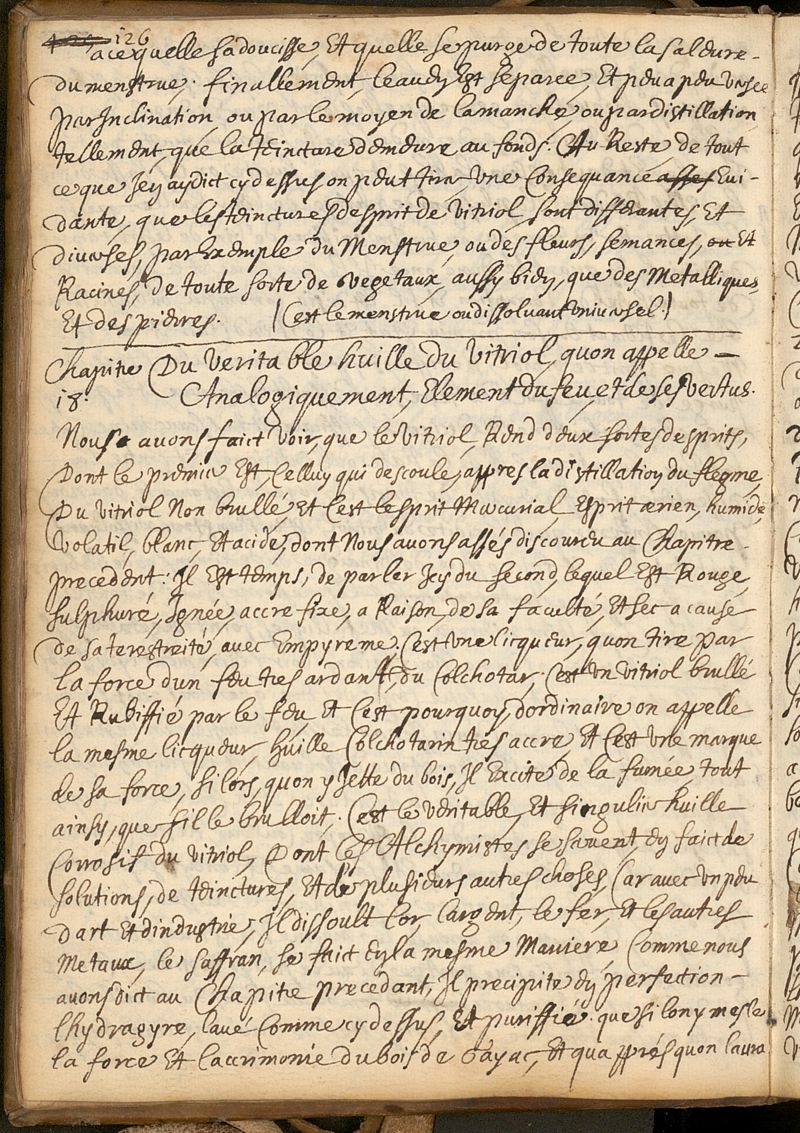 126
a ce quelle sadoucisse, Et quelle se purge de toute la saleure
du menstrue. finallement, leau dy Est separee, Et peu a peu vuisee
par Inclination, ou par le moyen de la manche, ou par distillation,
tellement, que la teincture demeure au fonds. Au Reste de tout
ce que Jey ay dict cy dessus on peut tirer Une Consequance Evi-
dante, que les teinctures desprit de vitriol, sont differantes, Et
diverses, par Exemple du Menstrue, ou des fleurs, semances, Et
Racines, de toute sorte de vegetaux, aussy bien, que des Metalliques,
Et des pierres. (C'est le menstrue ou dissoluant universel.)
Chapitre Du Veritable huille du Vitriol, quon appelle
18. Analogiquement, Element du feu, et de ses vertus.
Nous avons faict voir, que le vitriol, Rend deux sortes desprits,
Dont le premier Est, Celluy qui descoule, appres la distillation du flegme,
Du vitriol Non brullé, et C'est lesprit Mercurial, Esprit ærien, humide,
volatil, blanc, Et acide, dont Nous avons assés discouru au Chapitre
precedent: Il Est temps, de parler Icy du second, lequel Est Rouge,
sulphuré, Ignée, accre fixe, a Raison, de sa faculté, Et sec a cause
de sa terestreité, avec Empyreme. C'est Une licqueur, quon tire par
la force dun feu tres ardant, du Colchotar. C'est un vitriol brullé
Et Rubiffié par le feu, Et C'est pourquoy, dordinaire on appelle
la mesme licqueur, huille Colchotarin tres accre, Et C'est Une marque
de sa force, si lors, quon y Jette du bois, Il Excite de la fumée, tout
ainsy, que s'il le brulloit. C'est le veritable, Et singulier huille
Corrosif du vitriol, Dont les Alchymistes se servent, En faict de
solutions, de teinctures, Et de plusieurs autres choses, Car avec un peu
d'art Et dindustrie, Il dissoult lor, largent, le fer, Et les autres
Metaux, le saffran, se faict En la mesme Maniere, Comme nous
avons dict au Chapitre precedant, Il precipite En perfection
lhydragyre, lavé Comme cy dessus, Et puriffié. que si lon y mesle
la force Et lacrimonie du bois de Gayac, Et quappres quon laura